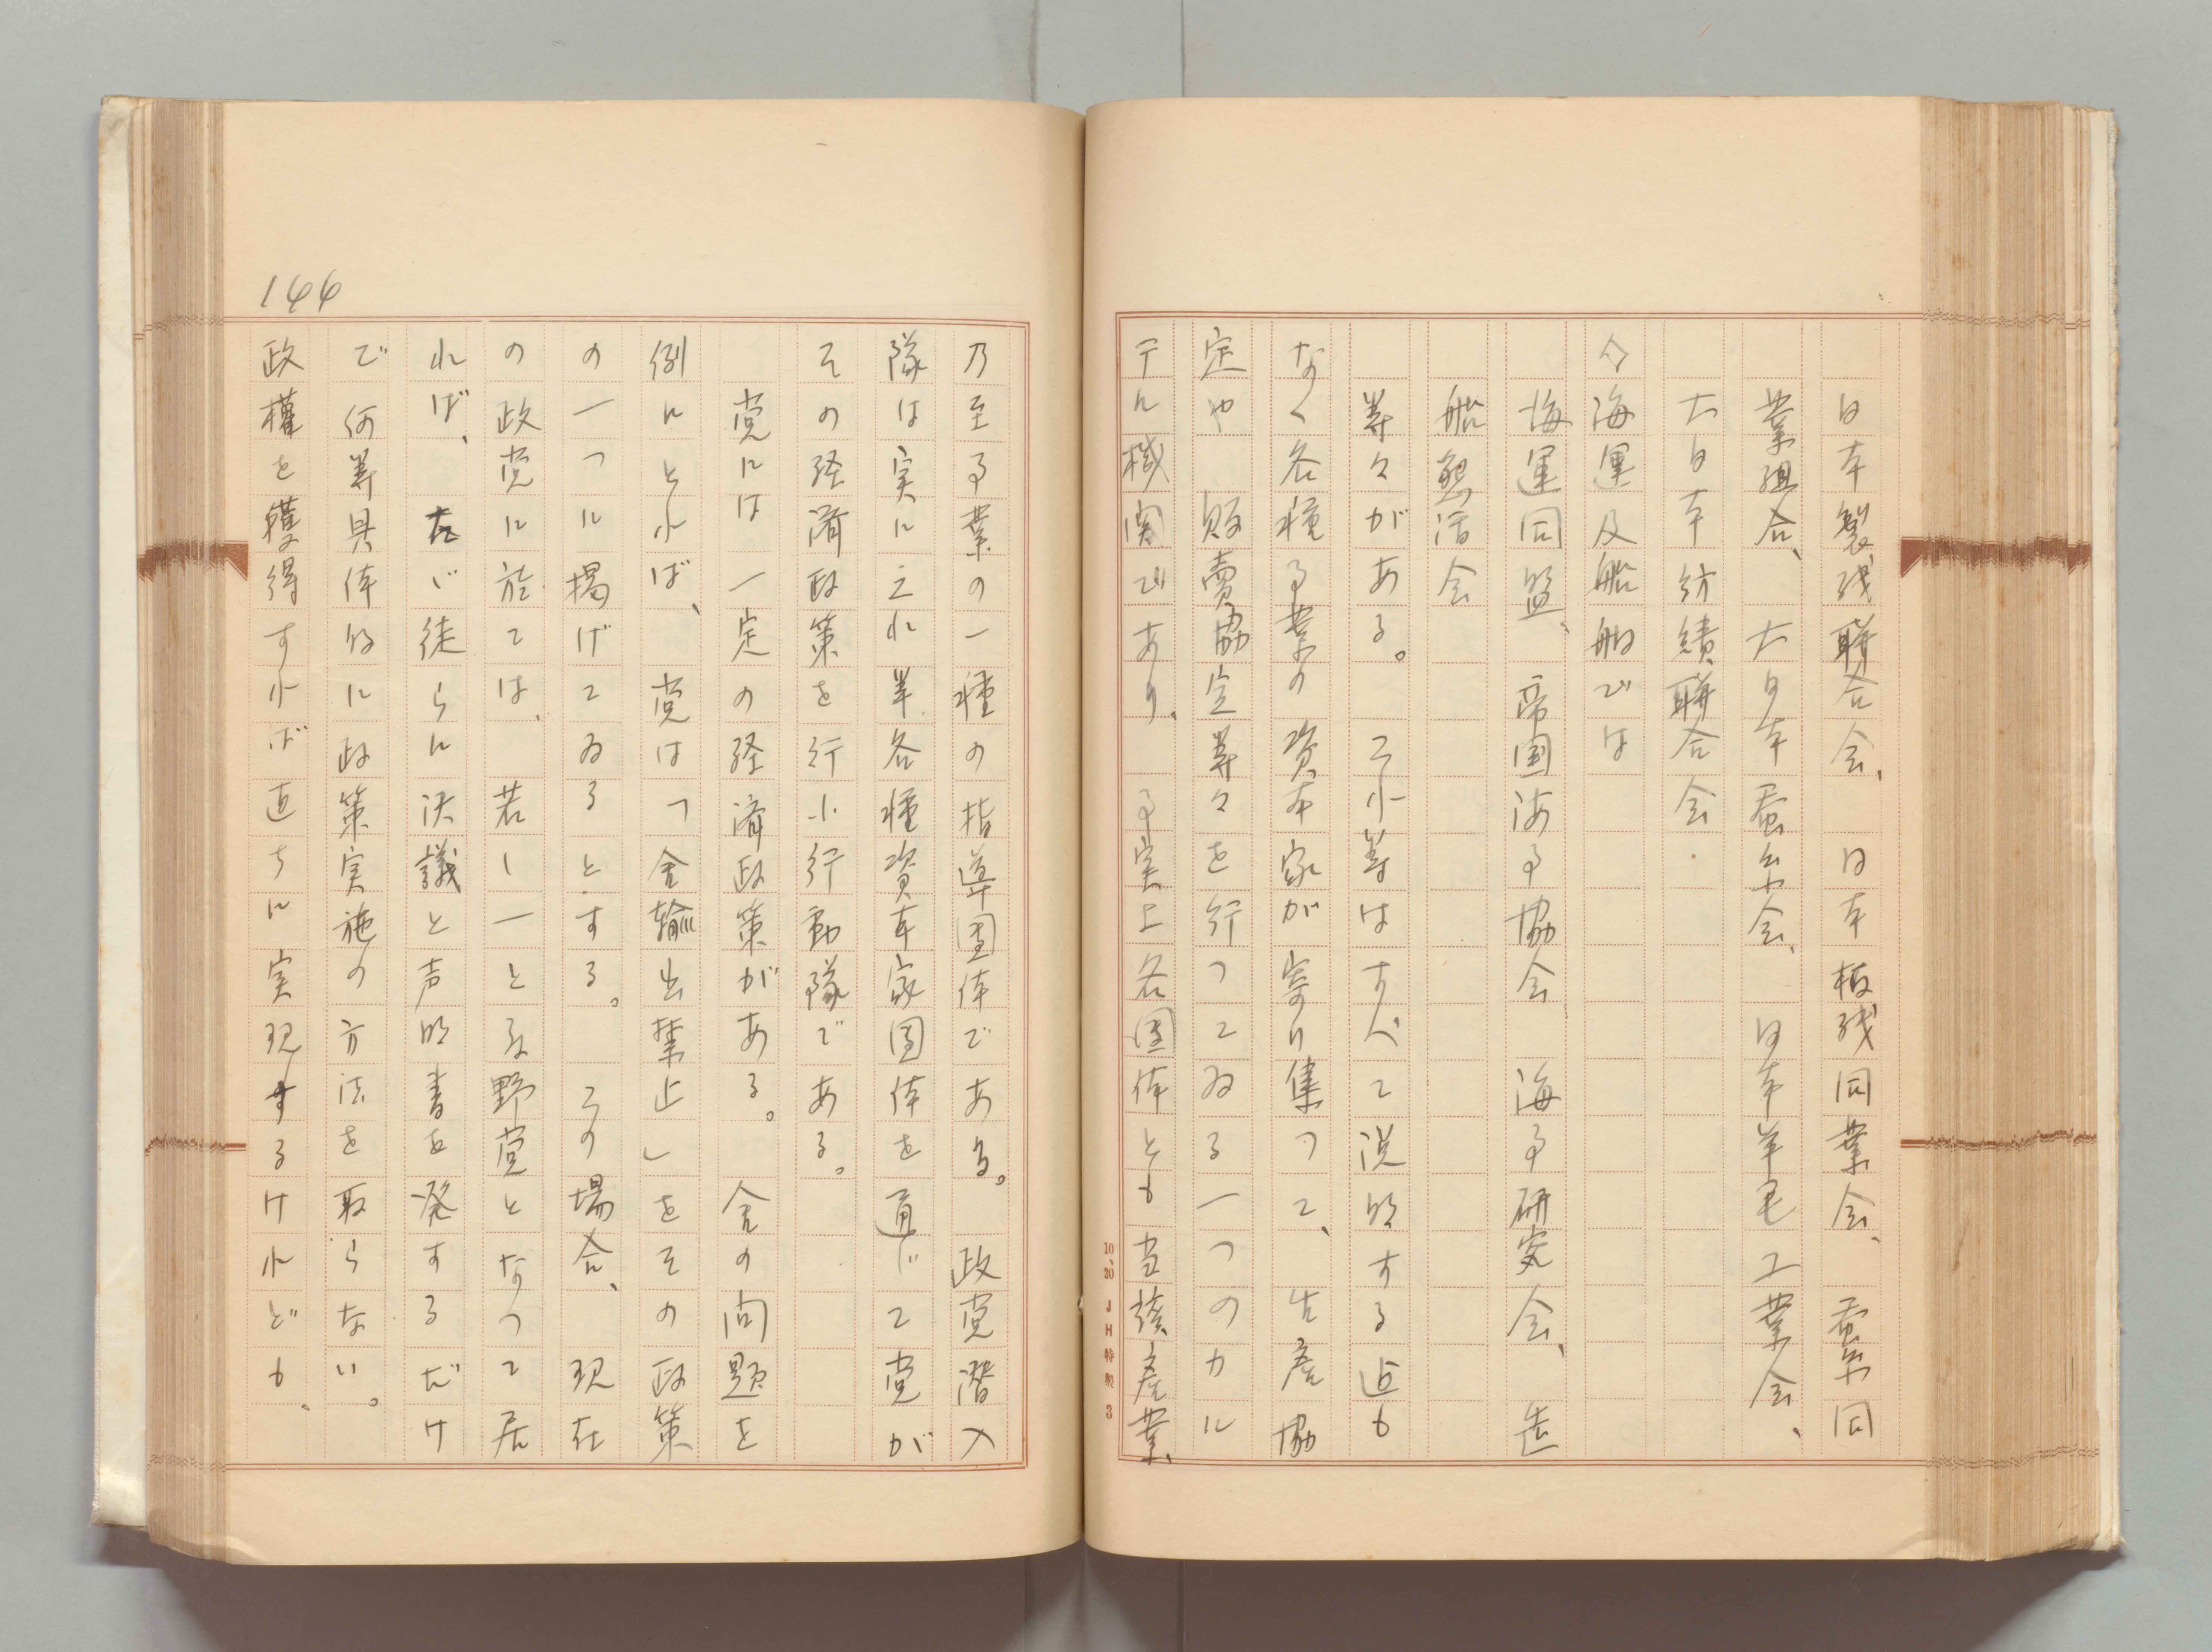 日本製絨聯合会、日本梳絨同業会、蚕糸同
業組合、大日本蚕糸会、日本羊毛工業会、
大日本紡績聯合会
◇海運及船舶では
海運同盟、帝国海事協会 海事研究会、造
船懇話会
等々がある。これ等はすべて説明する迄も
なく各種事業の資本家が寄り集つて、生産協
定や 販賣協定等々を行つてゐる一つのカル
テル機関であり、事実上各団体とも当該産業、
10、20 JH特製 3
乃至事業の一種の指導団体である。政党潜入
隊は実に之れ等各種資本家団体を通じて党が
その経済政策を行ふ行動隊である。
党には一定の経済政策がある。金の問題を
例にとれば、党は「金輸出禁止」をその政策
の一つに掲げてゐるとする。この場合、現在
の政党に於ては、若し一となる野党となつて居
れば、たゞ徒らに決議と声明書を発するだけ
で何等具体的に政策実施の方法を取らない。
政権を獲得すれば直ちに実現するけれども、
144